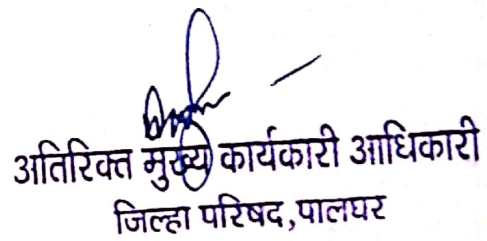 अतिरिक्त मुख्य कार्यकारी आधिकारी
जिल्हा परिषद,पालघर